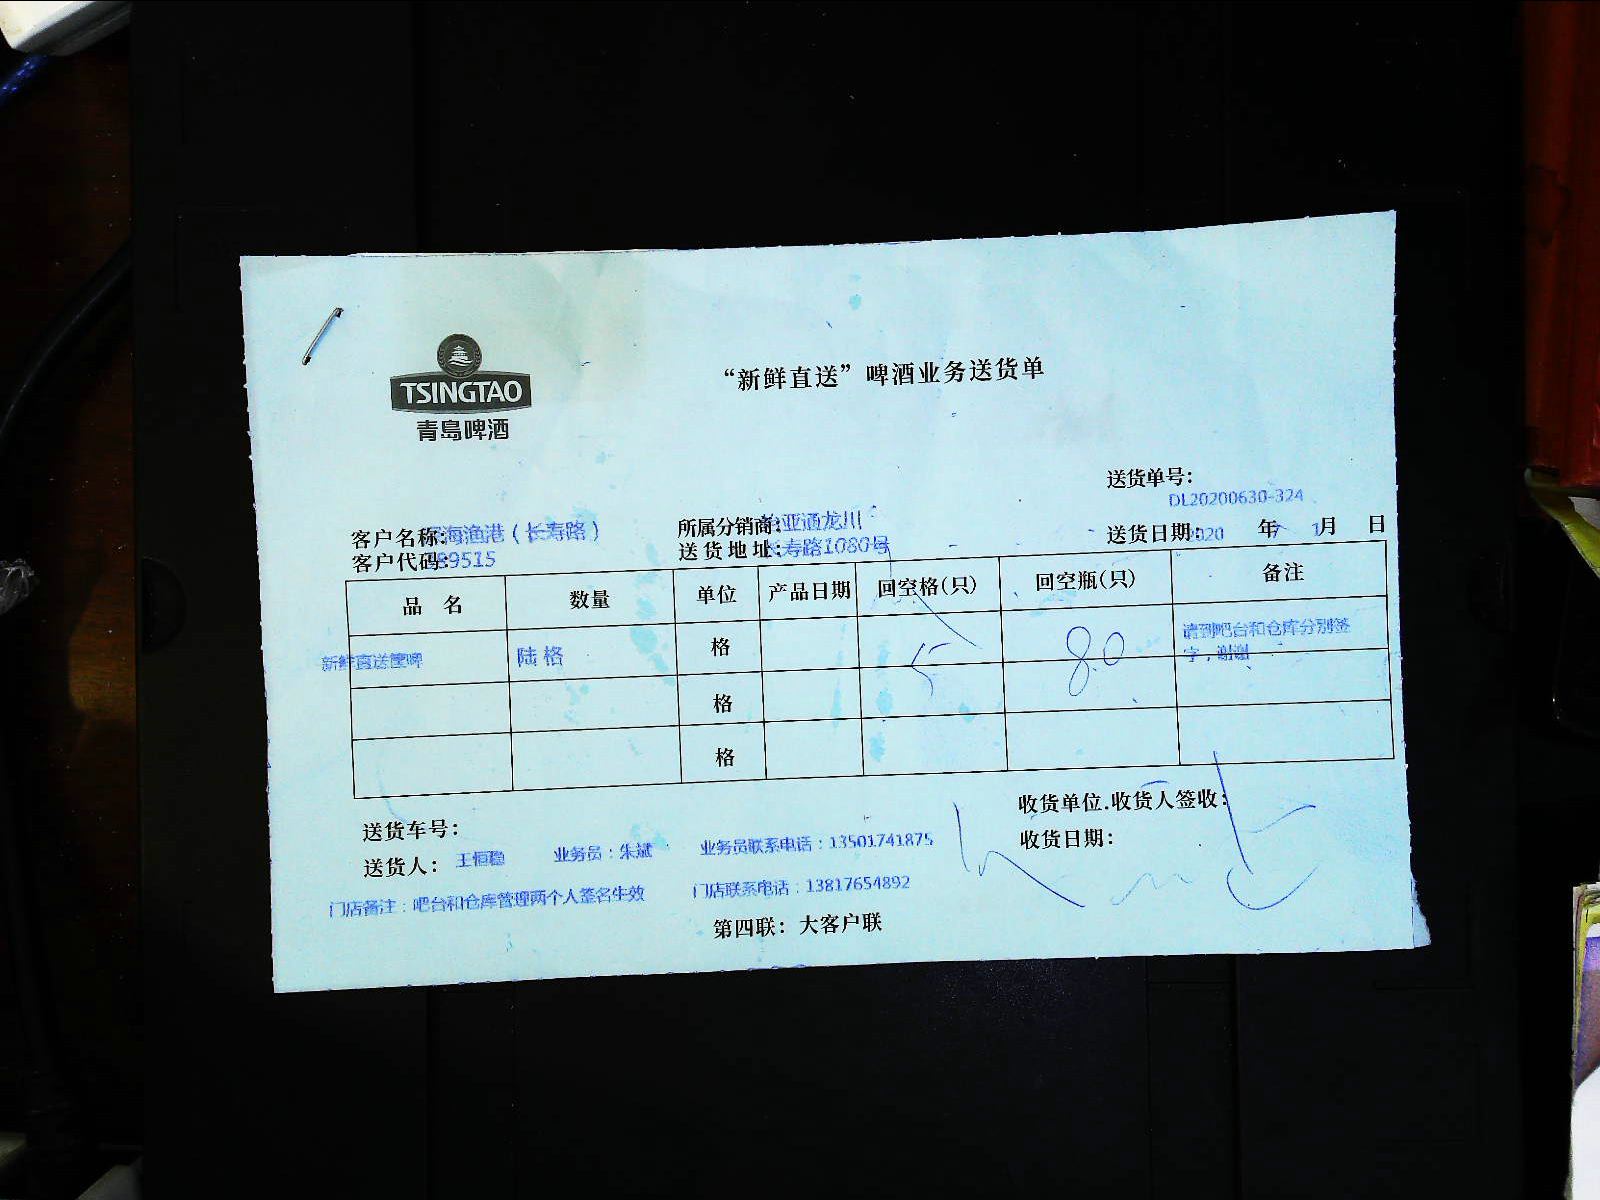 TSINGTAO
青島啤酒
“新鲜直送”啤酒业务送货单
送货单号:
DL20200630-324
客户名称:海渔港(长寿路) 所属分销商:亚通龙川 送货日期:2020 年7 1月 日
客户代码:89515 送货地址:长寿路1080号
品 名 数量 单位 产品日期 回空格(只) 回空瓶(只) 备注
新鲜直送 陆格 格 5 80 请到吧台和仓库分别签
字,谢谢
格
格
收货单位.收货人签收:
送货车号: 收货日期:
送货人: 王恒稳 业务员:朱斌 业务员联系电话:13501741875
门店备注:吧台和仓库管理两个人签名生效 门店联系电话:13817654892
第四联: 大客户联